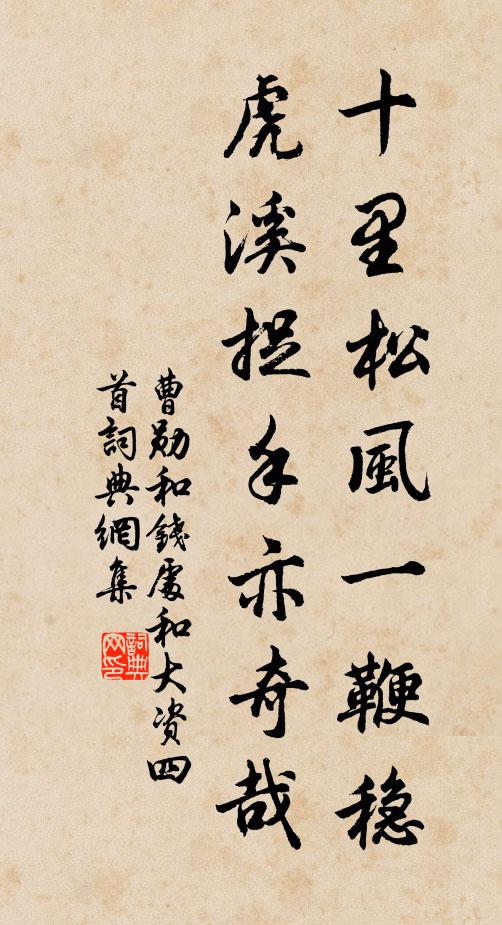 十里松風一鞭稳
虎溪捉手亦奇哉
曹勛和錢處和大资四
首詞典網集
詞典
网印